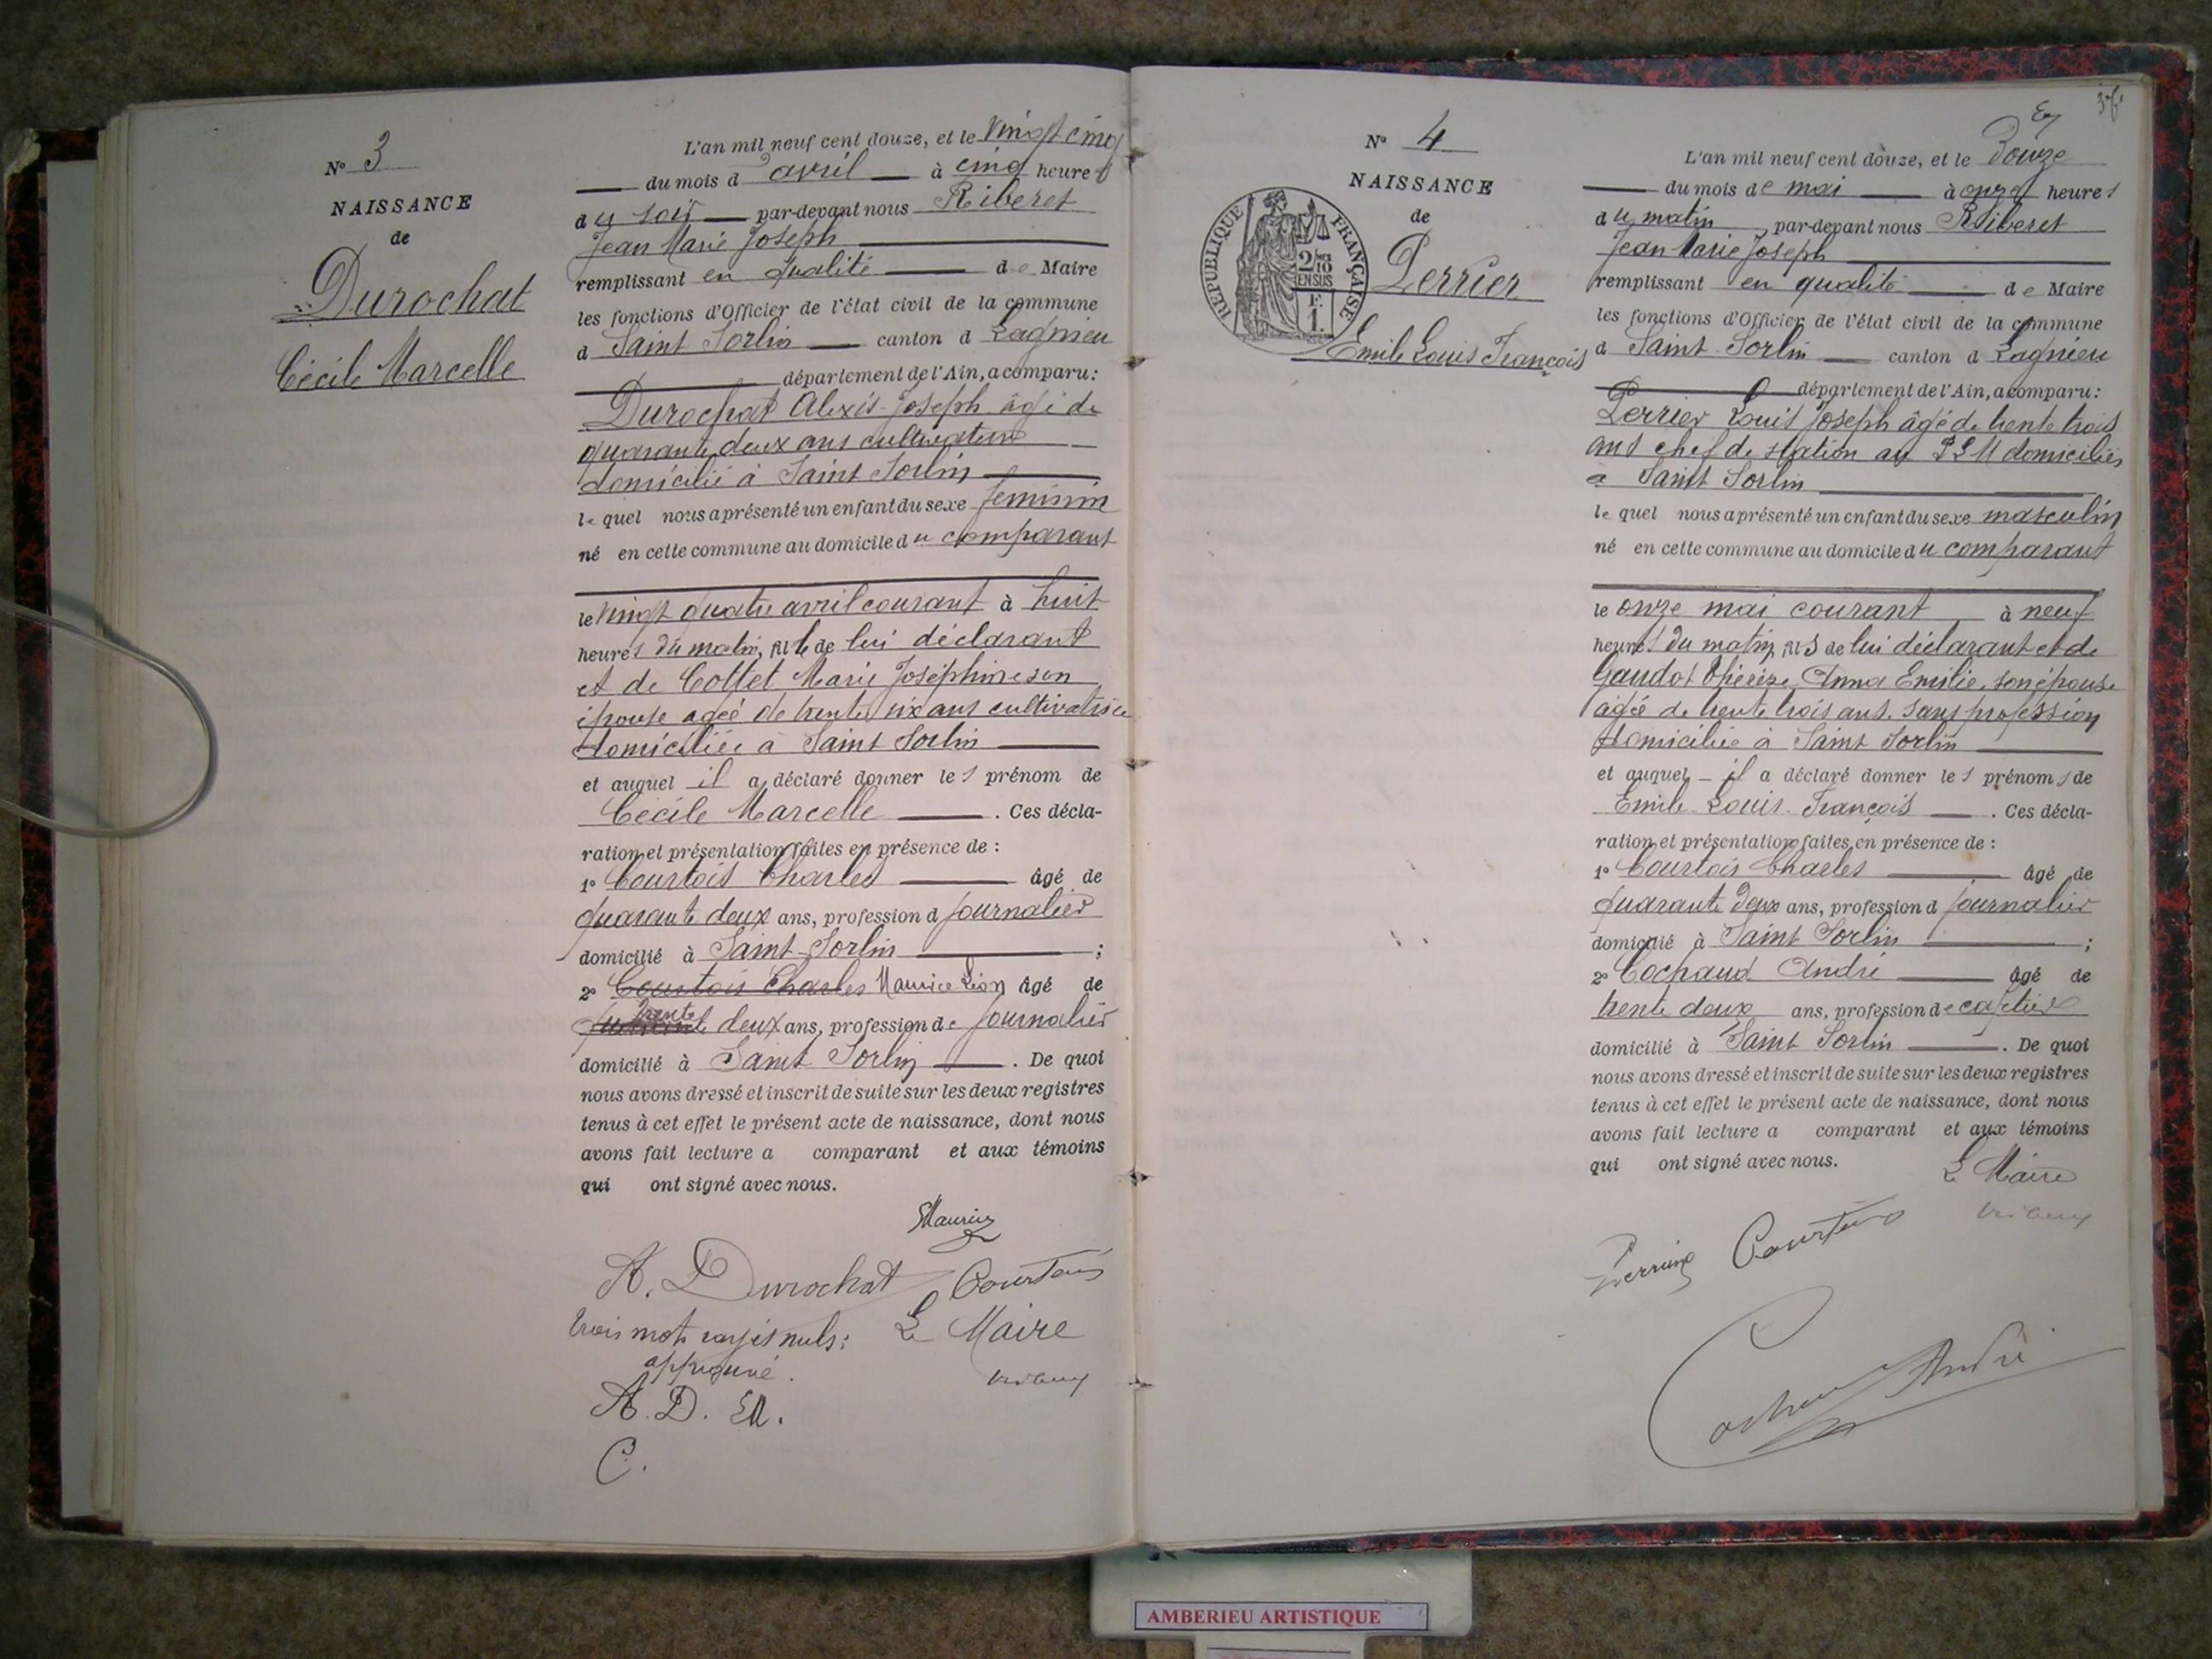 N° 3
NAISSANCE
de
Durochat
Cécile Marcelle
L'an mil neuf cent douze, et le vingt cinq
du mois d'avril à cinq heures
du soir par-devant nous Riberet
Jean Marie Joseph
remplissant en qualité de Maire
les fonctions d'Officier de l'état civil de la commune
d Saint Sorlin canton d Lagnieu
département de l'Ain, a comparu:
Durochat Alexis Joseph âgé de
quarante deux ans cultivateur
domicilié à Saint Sorlin
lequel nous a présenté un enfant du sexe feminin
né en cette commune au domicile du comparant
le vingt quatre avril courant à huit
heures du matin, fille de lui déclarant
et de Collet Marie Joséphine son
épouse agéé de trente six ans cultivatrice
domiciliée à Saint Sorlin
et auquel il a déclaré donner les prénom de
Cécile Marcelle . Ces décla-
ration et présentation faites en présence de :
1° Courtois Charles âgé de
quarante deux ans, profession d journalier
domicilié à Saint-Sorlin ;
2° Courtois Charles Maurice Léon âgé de
trente
quarante deux ans, profession de journalier
domicilié à Saint Sorlin . De quoi
nous avons dressé et inscrit de suite sur les deux registres
tenus à cet effet le présent acte de naissance, dont nous
avons fait lecture a comparant et aux témoins
qui ont signé avec nous.
Maurice
A. Durochat Courtois
Trois mots rayés nuls: Le Maire
approuvé.
A. D. EM.
C.
N° 4
NAISSANCE
de
Perrier
Emile Louis François
RÉPUBLIQUE FRANÇAISE
2/10
EN SUS
F.
1.
L'an mil neuf cent douze, et le Douze
du mois de mai à onze heures
du matin par-devant nous Riberet
Jean Marie Joseph
remplissant en qualité de Maire
les fonctions d'Officier de l'état civil de la commune
d Saint-Sorlin canton d Lagnieu
département de l'Ain, a comparu:
Perrier Louis Joseph âgé de trente trois
ans chef de station au PLM domicilié
à Saint Sorlin
lequel nous a présenté un enfant du sexe masculin
né en cette commune au domicile du comparant
le onze mai courant à neuf
heures du matin, fils de lui déclarant et de
Gaudot Thérèze Anna Emilie, son épouse
agée de trente trois ans. sans profession
domiciliée à Saint Sorlin
et auquel il a déclaré donner les prénoms de
Emile Louis François . Ces décla-
ration et présentation faites en présence de :
1° Courtois Charles âgé de
quarante deux ans, profession d journalier
domicilié à Saint Sorlin ;
2° Cochaud André âgé de
trente deux ans, profession de cafetier
domicilié à Saint Sorlin . De quoi
nous avons dressé et inscrit de suite sur les deux registres
tenus à cet effet le présent acte de naissance, dont nous
avons fait lecture a comparant et aux témoins
qui ont signé avec nous.
Le Maire
Courtois
André
AMBERIEU ARTISTIQUE